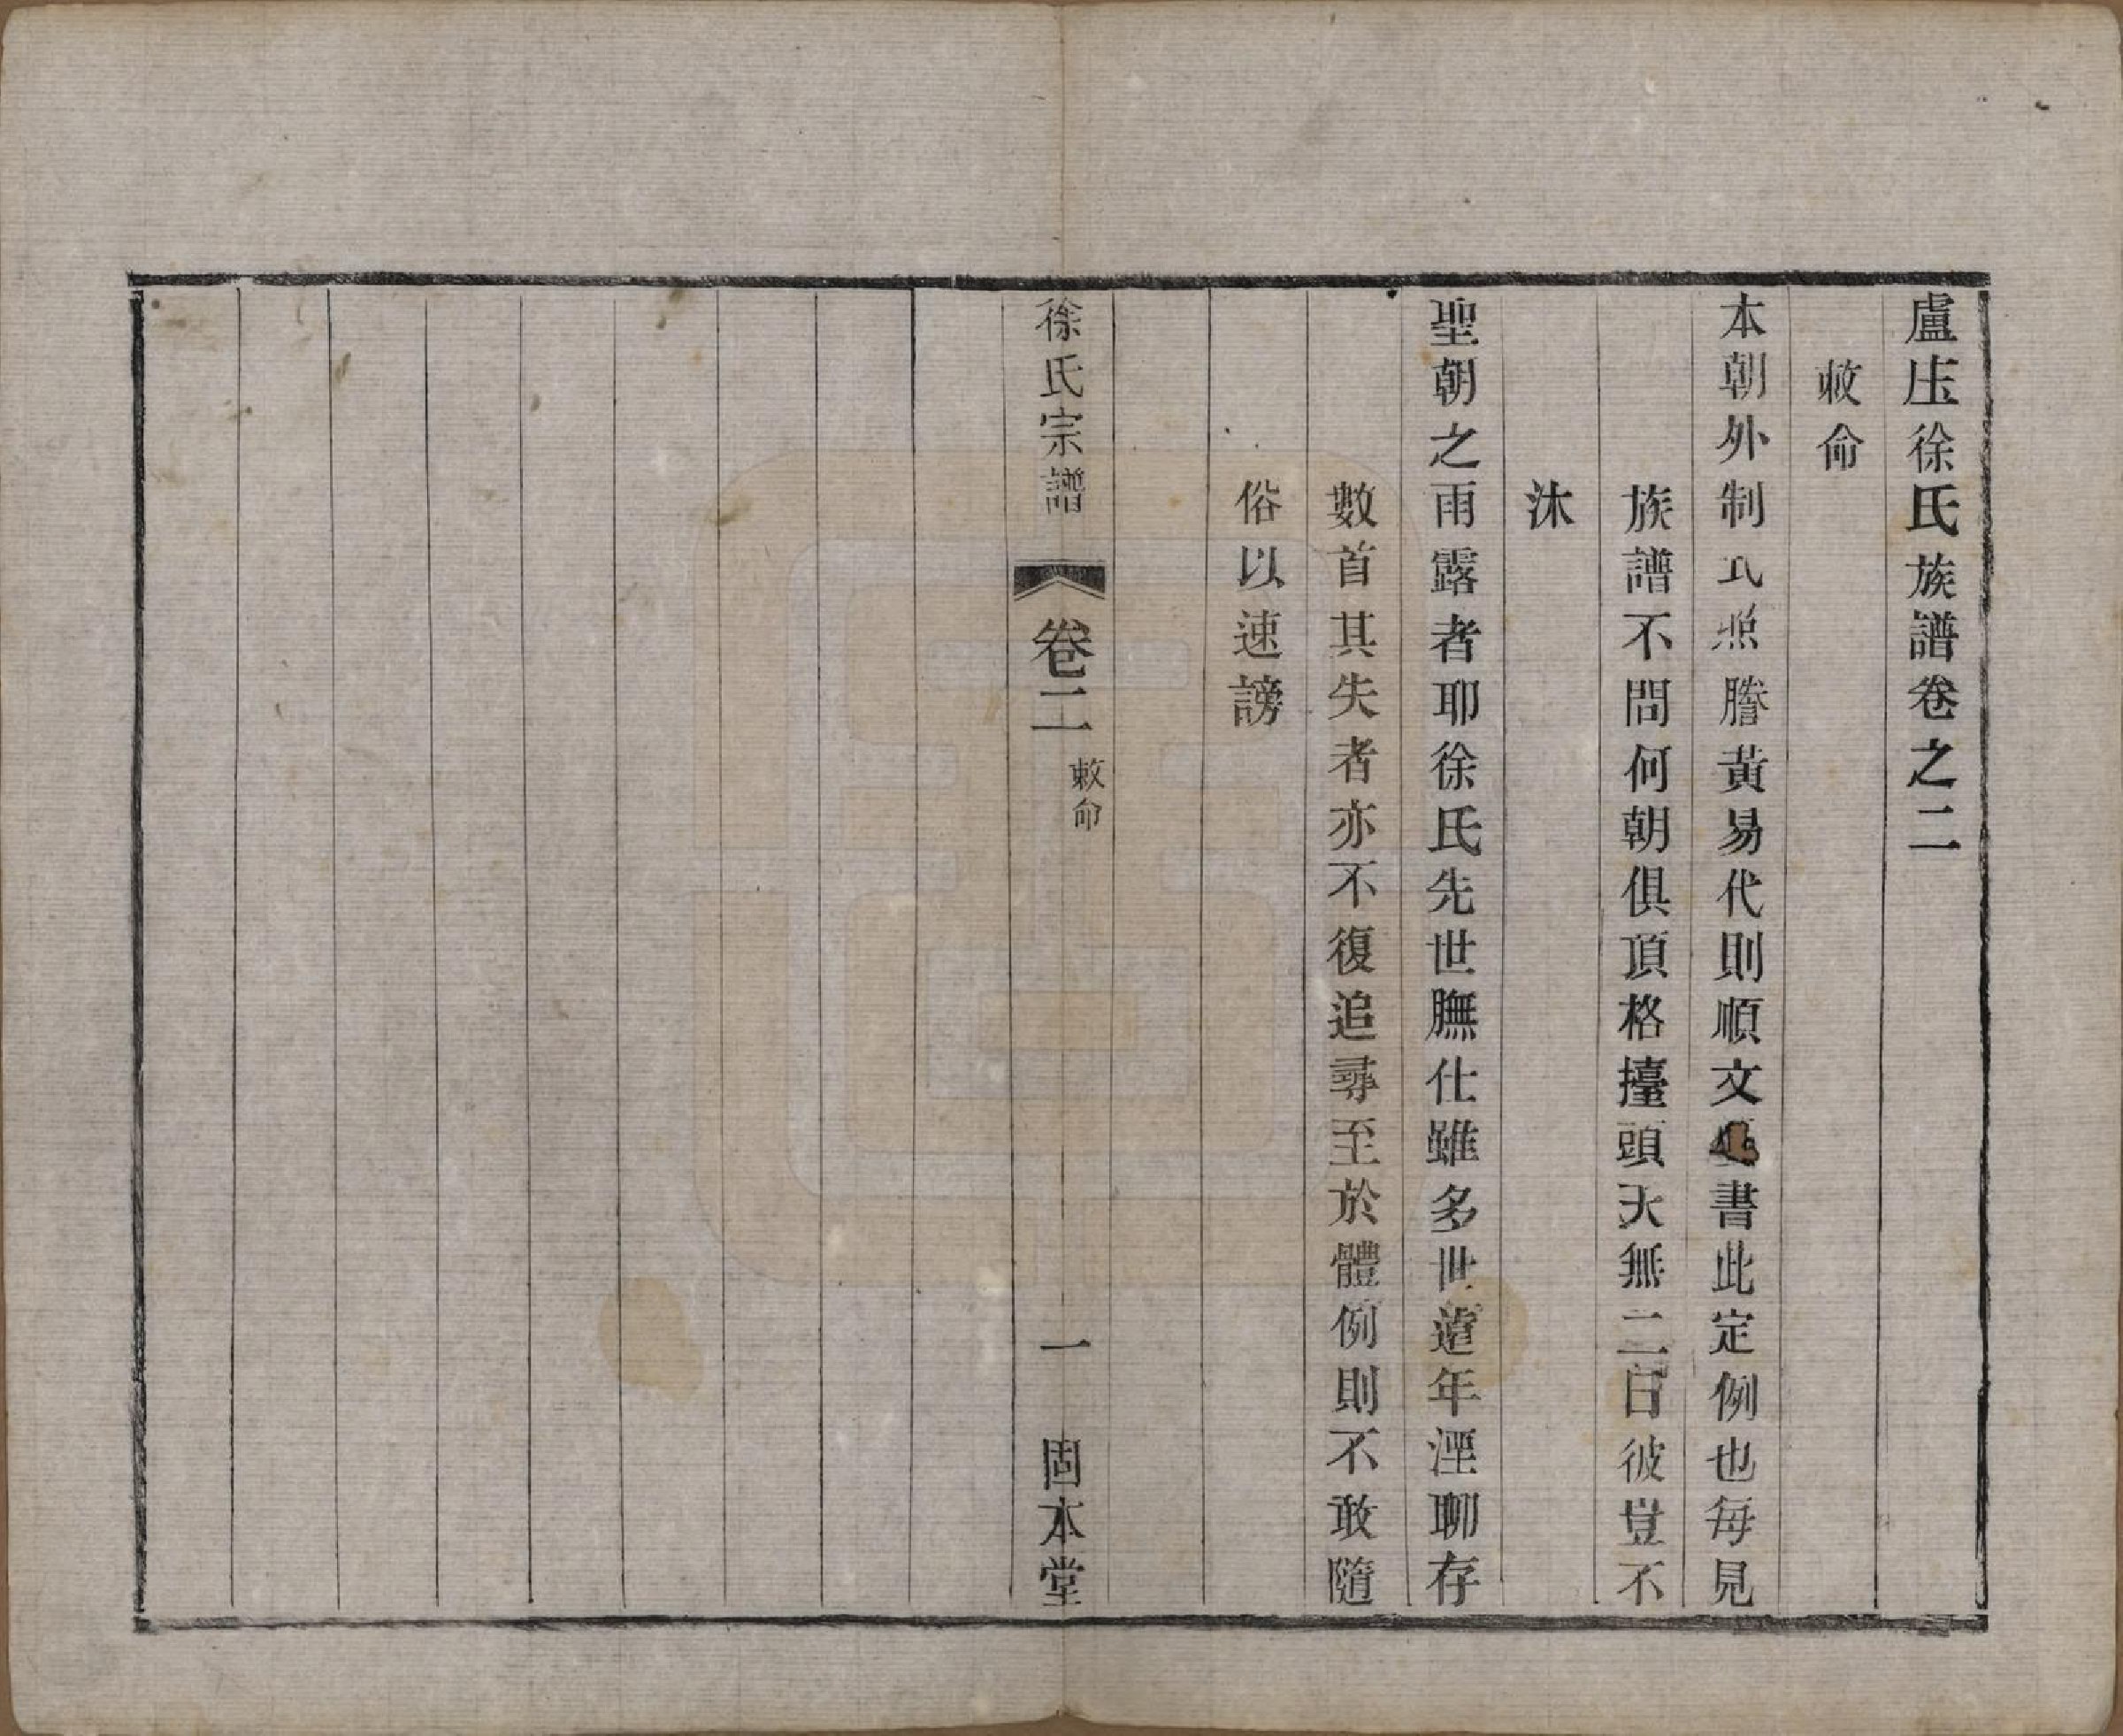 盧庒徐氏族譜卷之二
敕命
本朝外制式照謄黃易代則順文書此定例也每見
族譜不問何朝俱頂格擡頭天無二日彼豈不
沐
聖朝之雨露者耶徐氏先世膴仕雖多世遠年湮聊存
數首其失者亦不復追尋至於體例則不敢隨
俗以速謗
徐氏宗譜 卷二 敕命 一 固本堂